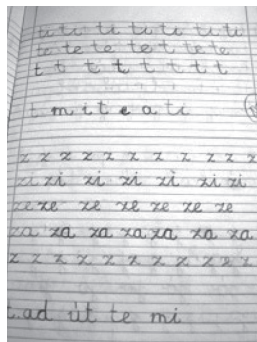 ti ti ti ti ti ti ti
te te te te t te te
t t t t t t t t
t m i t e a ti
z z z z z z z z z z
zi zi zi zi zi zi zi
ze ze ze ze ze ze ze
za za za za za za za
z z z z z z z z z z
t. ad út te mi